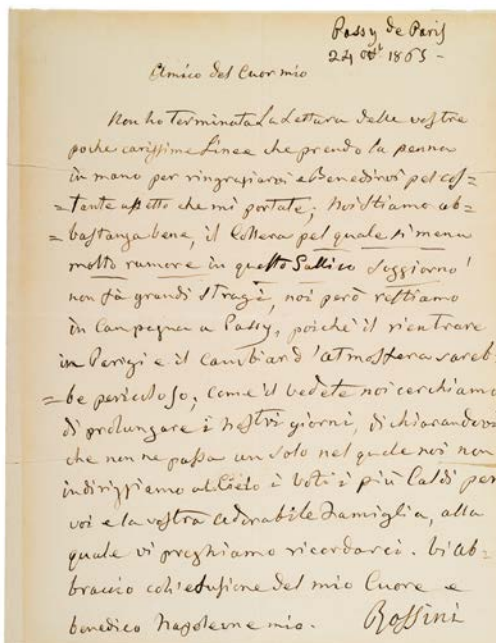 Passy de Paris
24 8bre 1865 -
Amico del Cuor mio
Non ho terminata La Lettura delle vostre
poche carissime Linee che prendo la penna
in mano per ringraziarvi e Benedirvi pel cos=
=tante affetto che mi portate; Noi Stiamo ab=
=bastanza bene, il Collera pel quale si mena
molto rumore in questo Gallico Soggiorno
non fà grandi stragi, noi però restiamo
in Campagna a Passy, poiché il rientrare
in Parigi e il cambiar d'atmosfera sareb=
=be pericoloso; Come il vedete noi cerchiamo
di prolungare i nostri giorni, dichiarandovi
che non ne passa un solo nel quale noi non
indirizziamo al Cielo i voti i più Caldi per
voi e la vostra adorabile Famiglia, alla
quale vi preghiamo ricordarci. Vi ab=
braccio coll'efusione del mio Cuore e
benedico Napoleone mio. Rossini